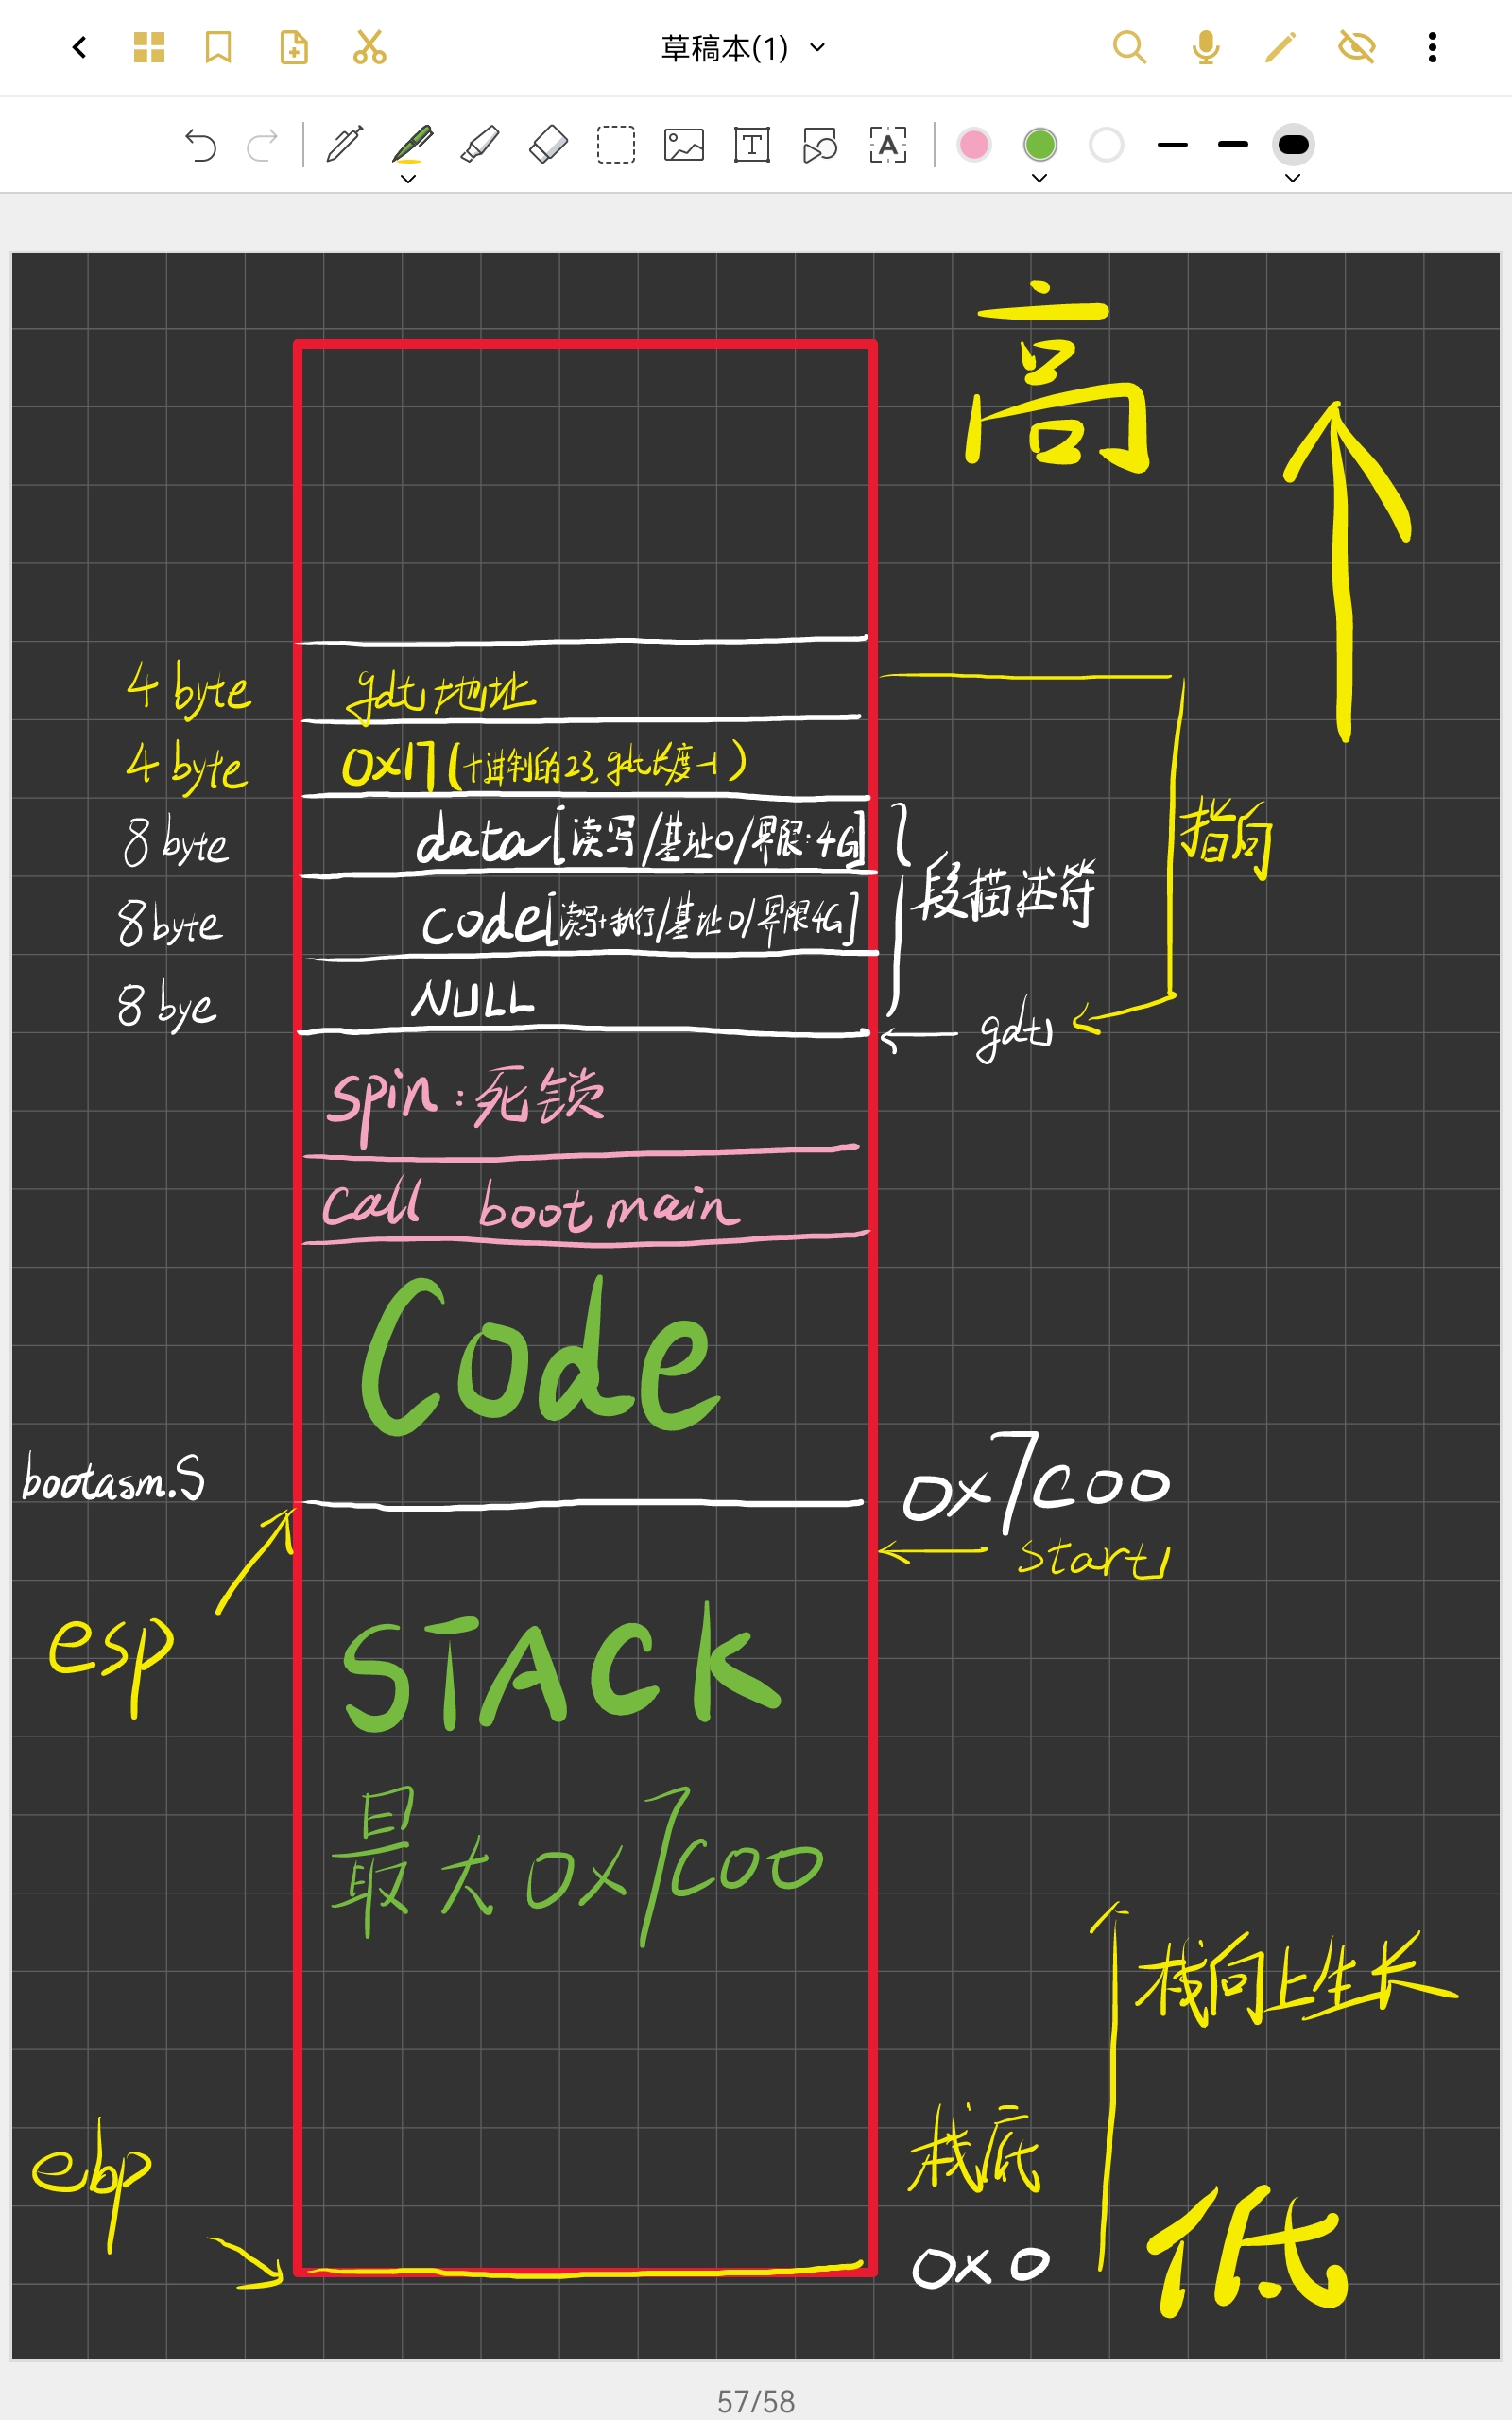 草稿本(1)
T
A
高
4 byte
gdt 地址
4 byte
0x17(十进制的23,gdt长度-1)
指向
8 byte
data[读写/基址0/界限:4G]
段描述符
8 byte
code[读写+执行/基址0/界限4G]
8 bye
NULL
gdt
spin:死锁
call bootmain
Code
bootasm.S
0x7c00
start
esp
STACK
最大0x7c00
栈向上生长
栈底
ebp
低
0x0
57/58